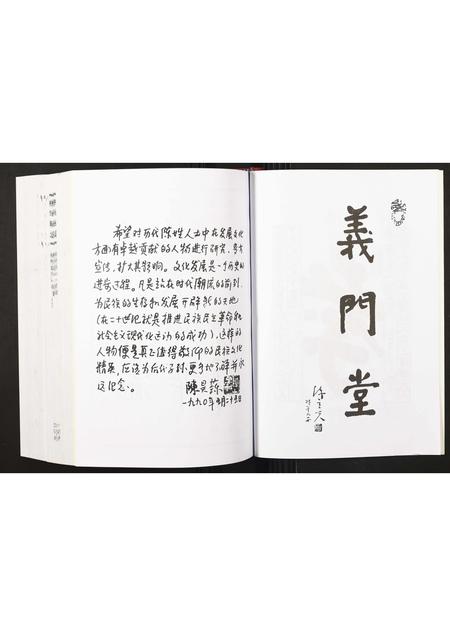 希望对历代陈姓人士中在发展文化
方面有卓越贡献的人物进行研究，
宣传，扩大其影响。文化发展是一个历史的
进步过程。凡是站在时代潮流的前列，
为民族的生存和发展开辟新的天地
（在二十世纪就是推进民族民主革命和
社会主义现代化运动的成功），这样的
人物便是真正值得敬仰的民族文化
精英，应该为后代子孙更多地了解并永
远纪念。
陳昊蘇
一九九〇年
義門堂